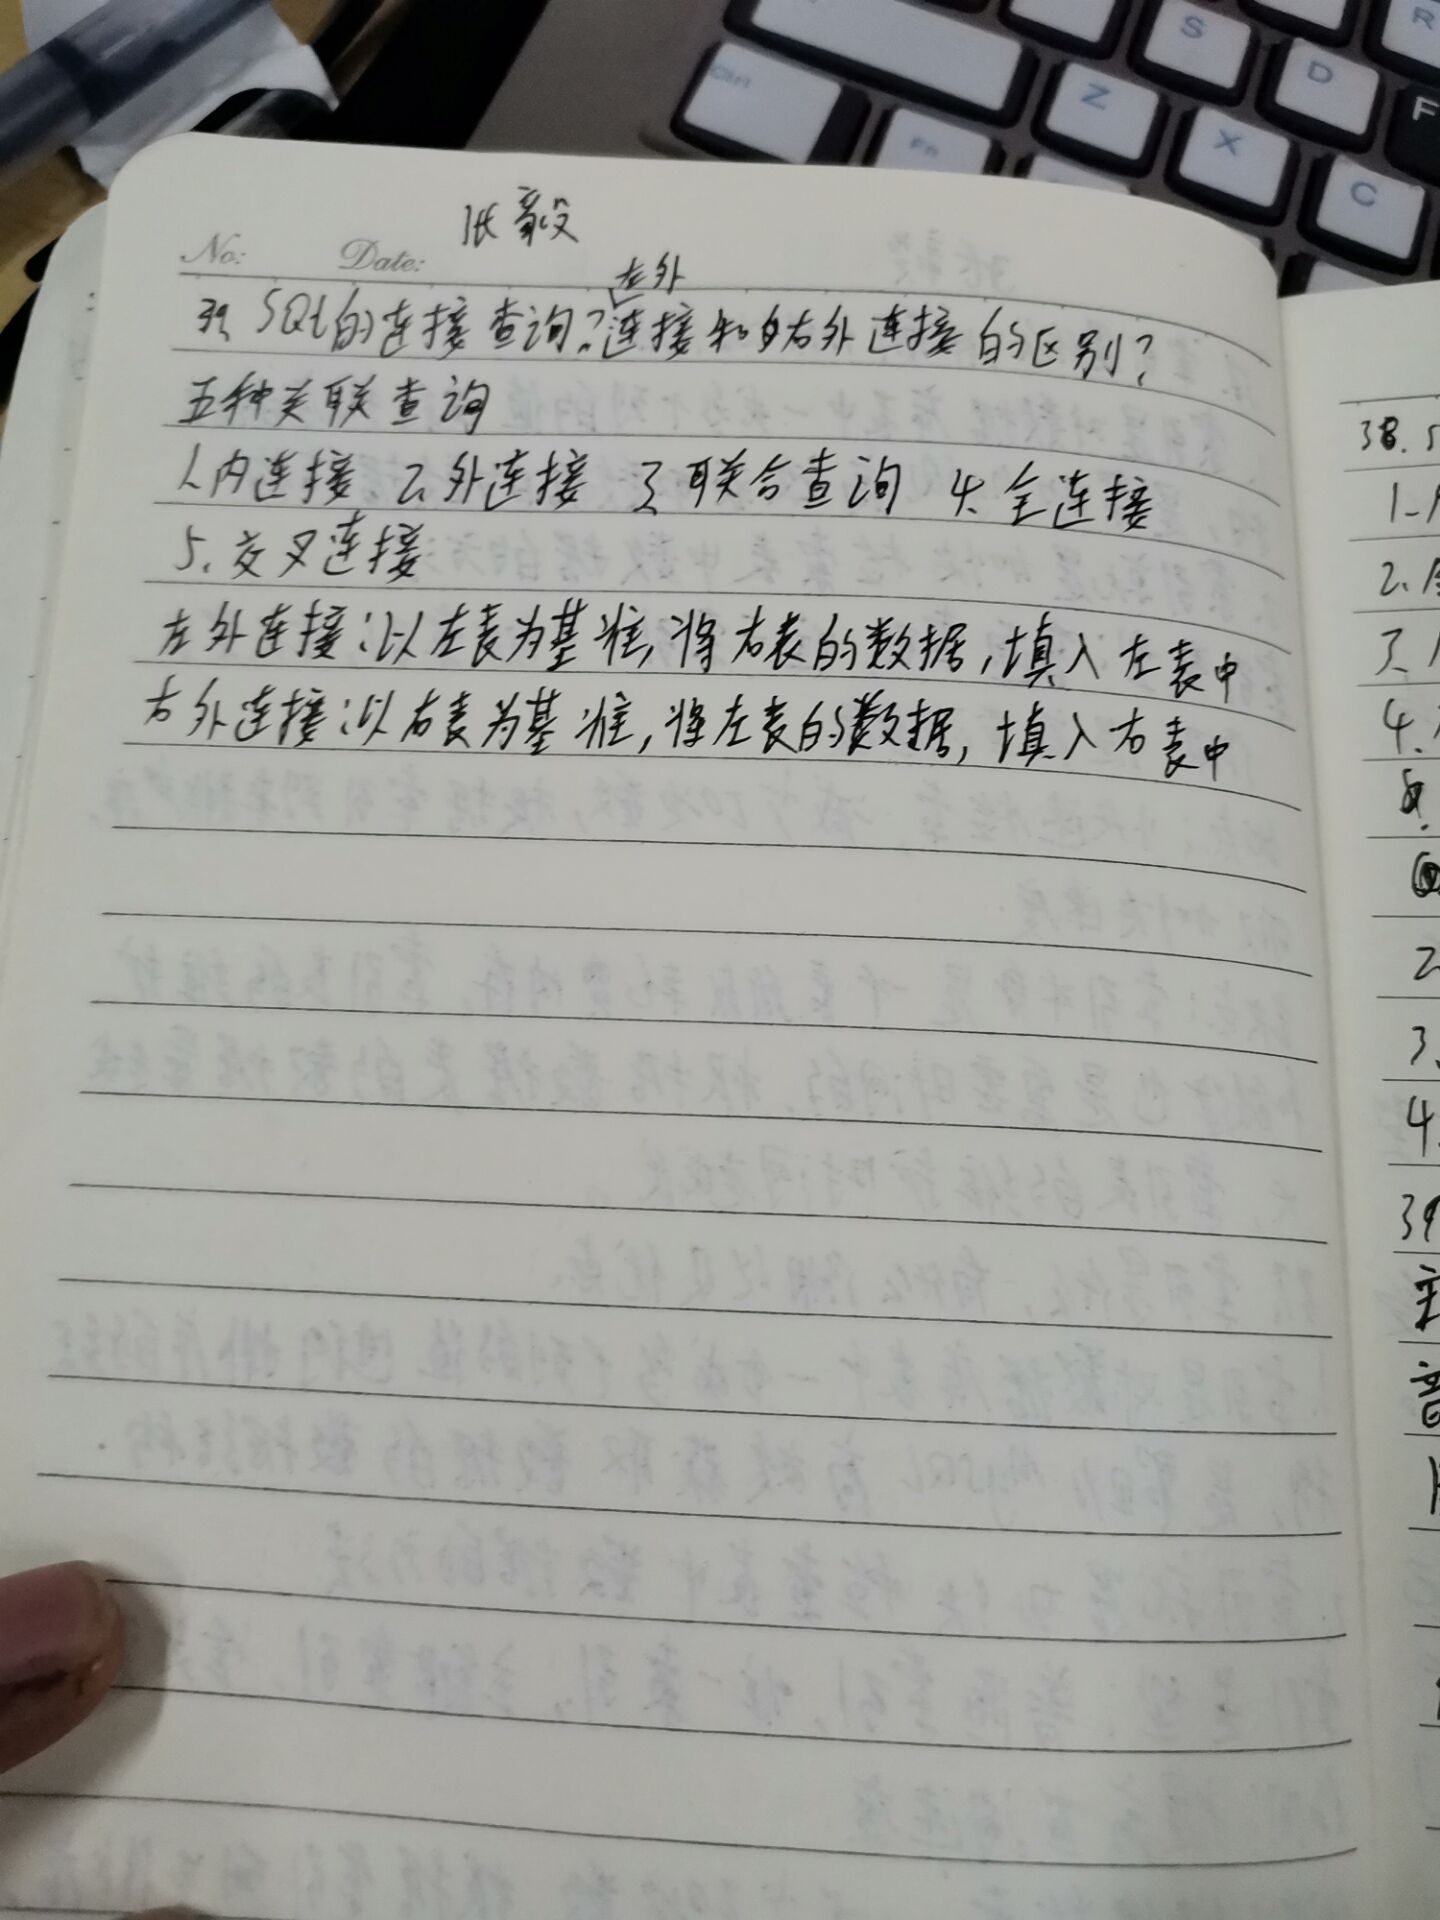 张毅
No: Date:
39、SQL的连接查询？左外连接和右外连接的区别？
五种关联查询
1、内连接 2、外连接 3、联合查询 4、全连接
5、交叉连接
左外连接：以左表为基准，将右表的数据，填入左表中
右外连接：以右表为基准，将左表的数据，填入右表中
38.
1.
2、
3、
4、
2
3、
4、
39
Ctrl
Fn
Z
X
C
S
D
F
R